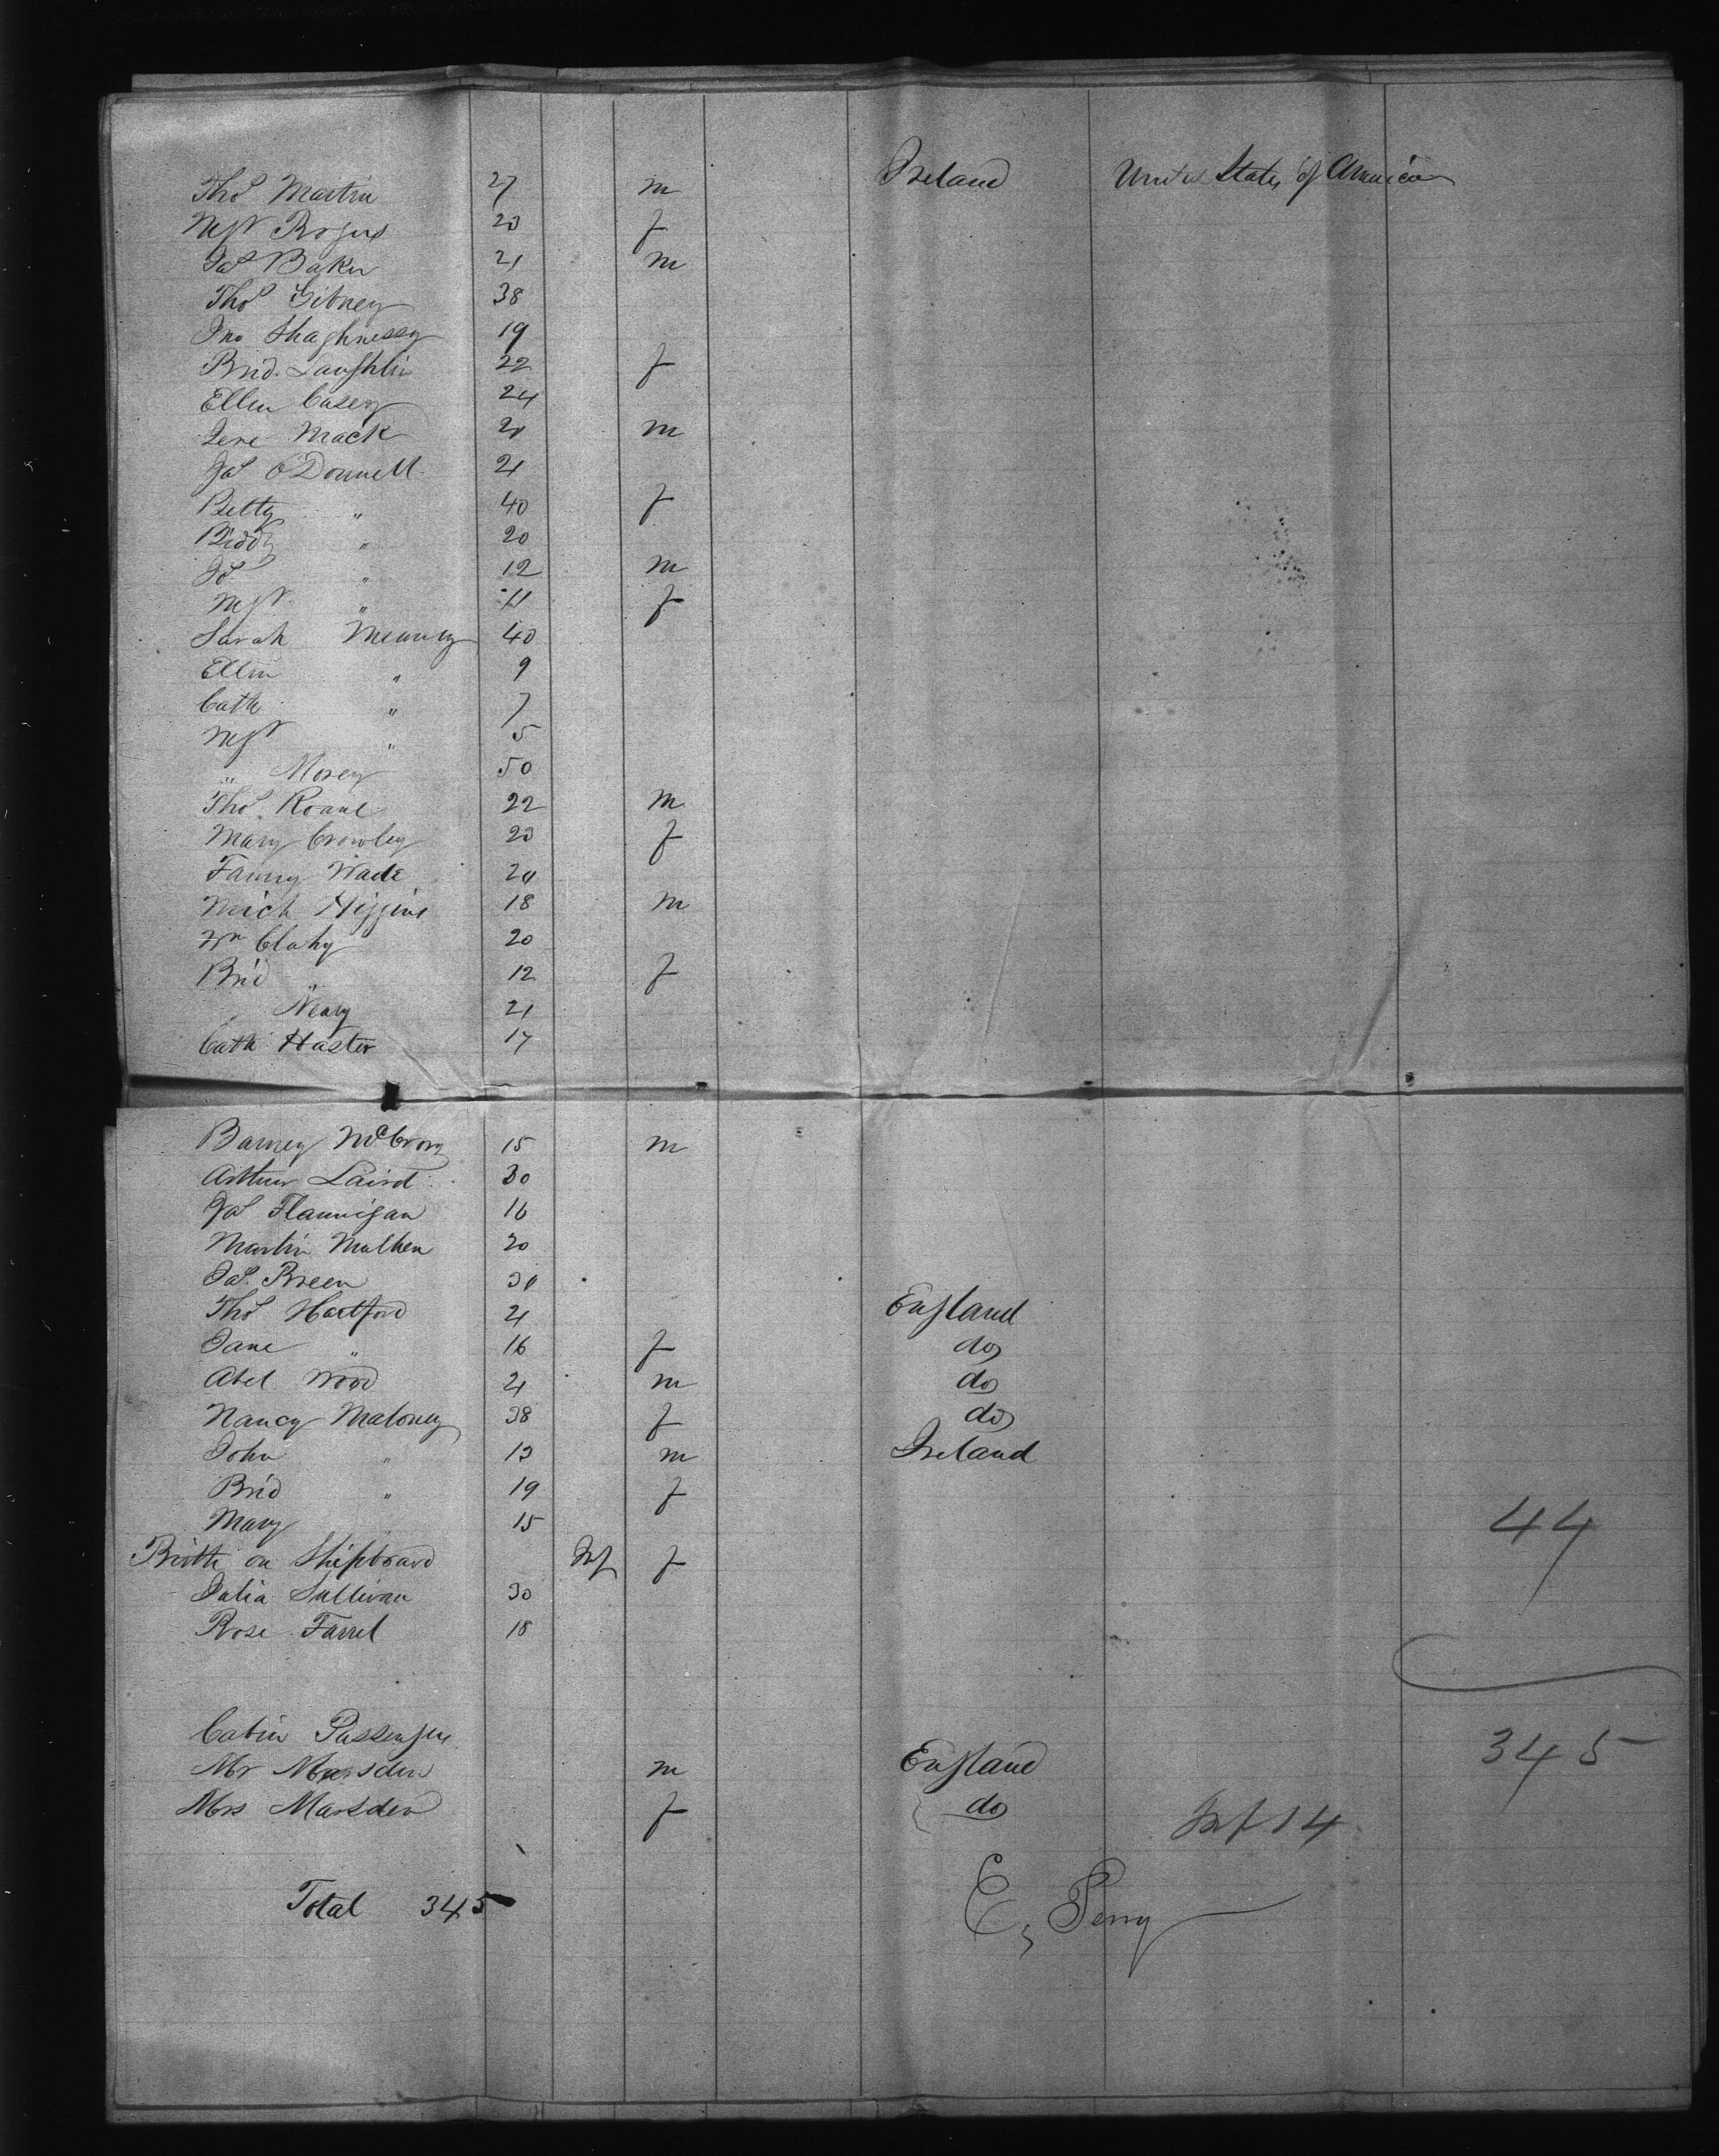 Thos Martin 27 m Ireland United States of America
Mgt Rogers 20 f
Jas Baker 21 m
Thos Gibney 38
Jno Shaghnessy 19
Brid. Laughlin 22 f
Ellen Casey 24
Jere Mack 21 m
Jas O'Donnell 21
Betty " 40 f
Biddy " 20
Jos " 12 m
Mgt " 11 f
Sarah 40
Ellen " 9
Cath " 7
Mgt " 5
" Morey 50
Thos Roane 22 m
Mary Crowley 20 f
Fanny Wade 20
Mich Higgins 18 m
Wm Clahy 20
Brid " 12 f
" Neary 21
Cath Haster 17
Barney McCrory 15 m
Arthur Laird 30
Jas Flannigan 16
Martin Mulhen 20
Jas. Breen 30
Thos Hartford 21 England
Jane " 16 f do
Abel Wood 21 m do
Nancy Maloney 38 f do
John " 13 m Ireland
Brid " 19 f
Mary 15 44
Birth on Shipboard Inf f
Julia Sullivan 30
Rose Farrel 18
Cabin Passengers 345
Mr Marsden m England
Mrs Marsden f do Inf 14
Total 345 E, Perry